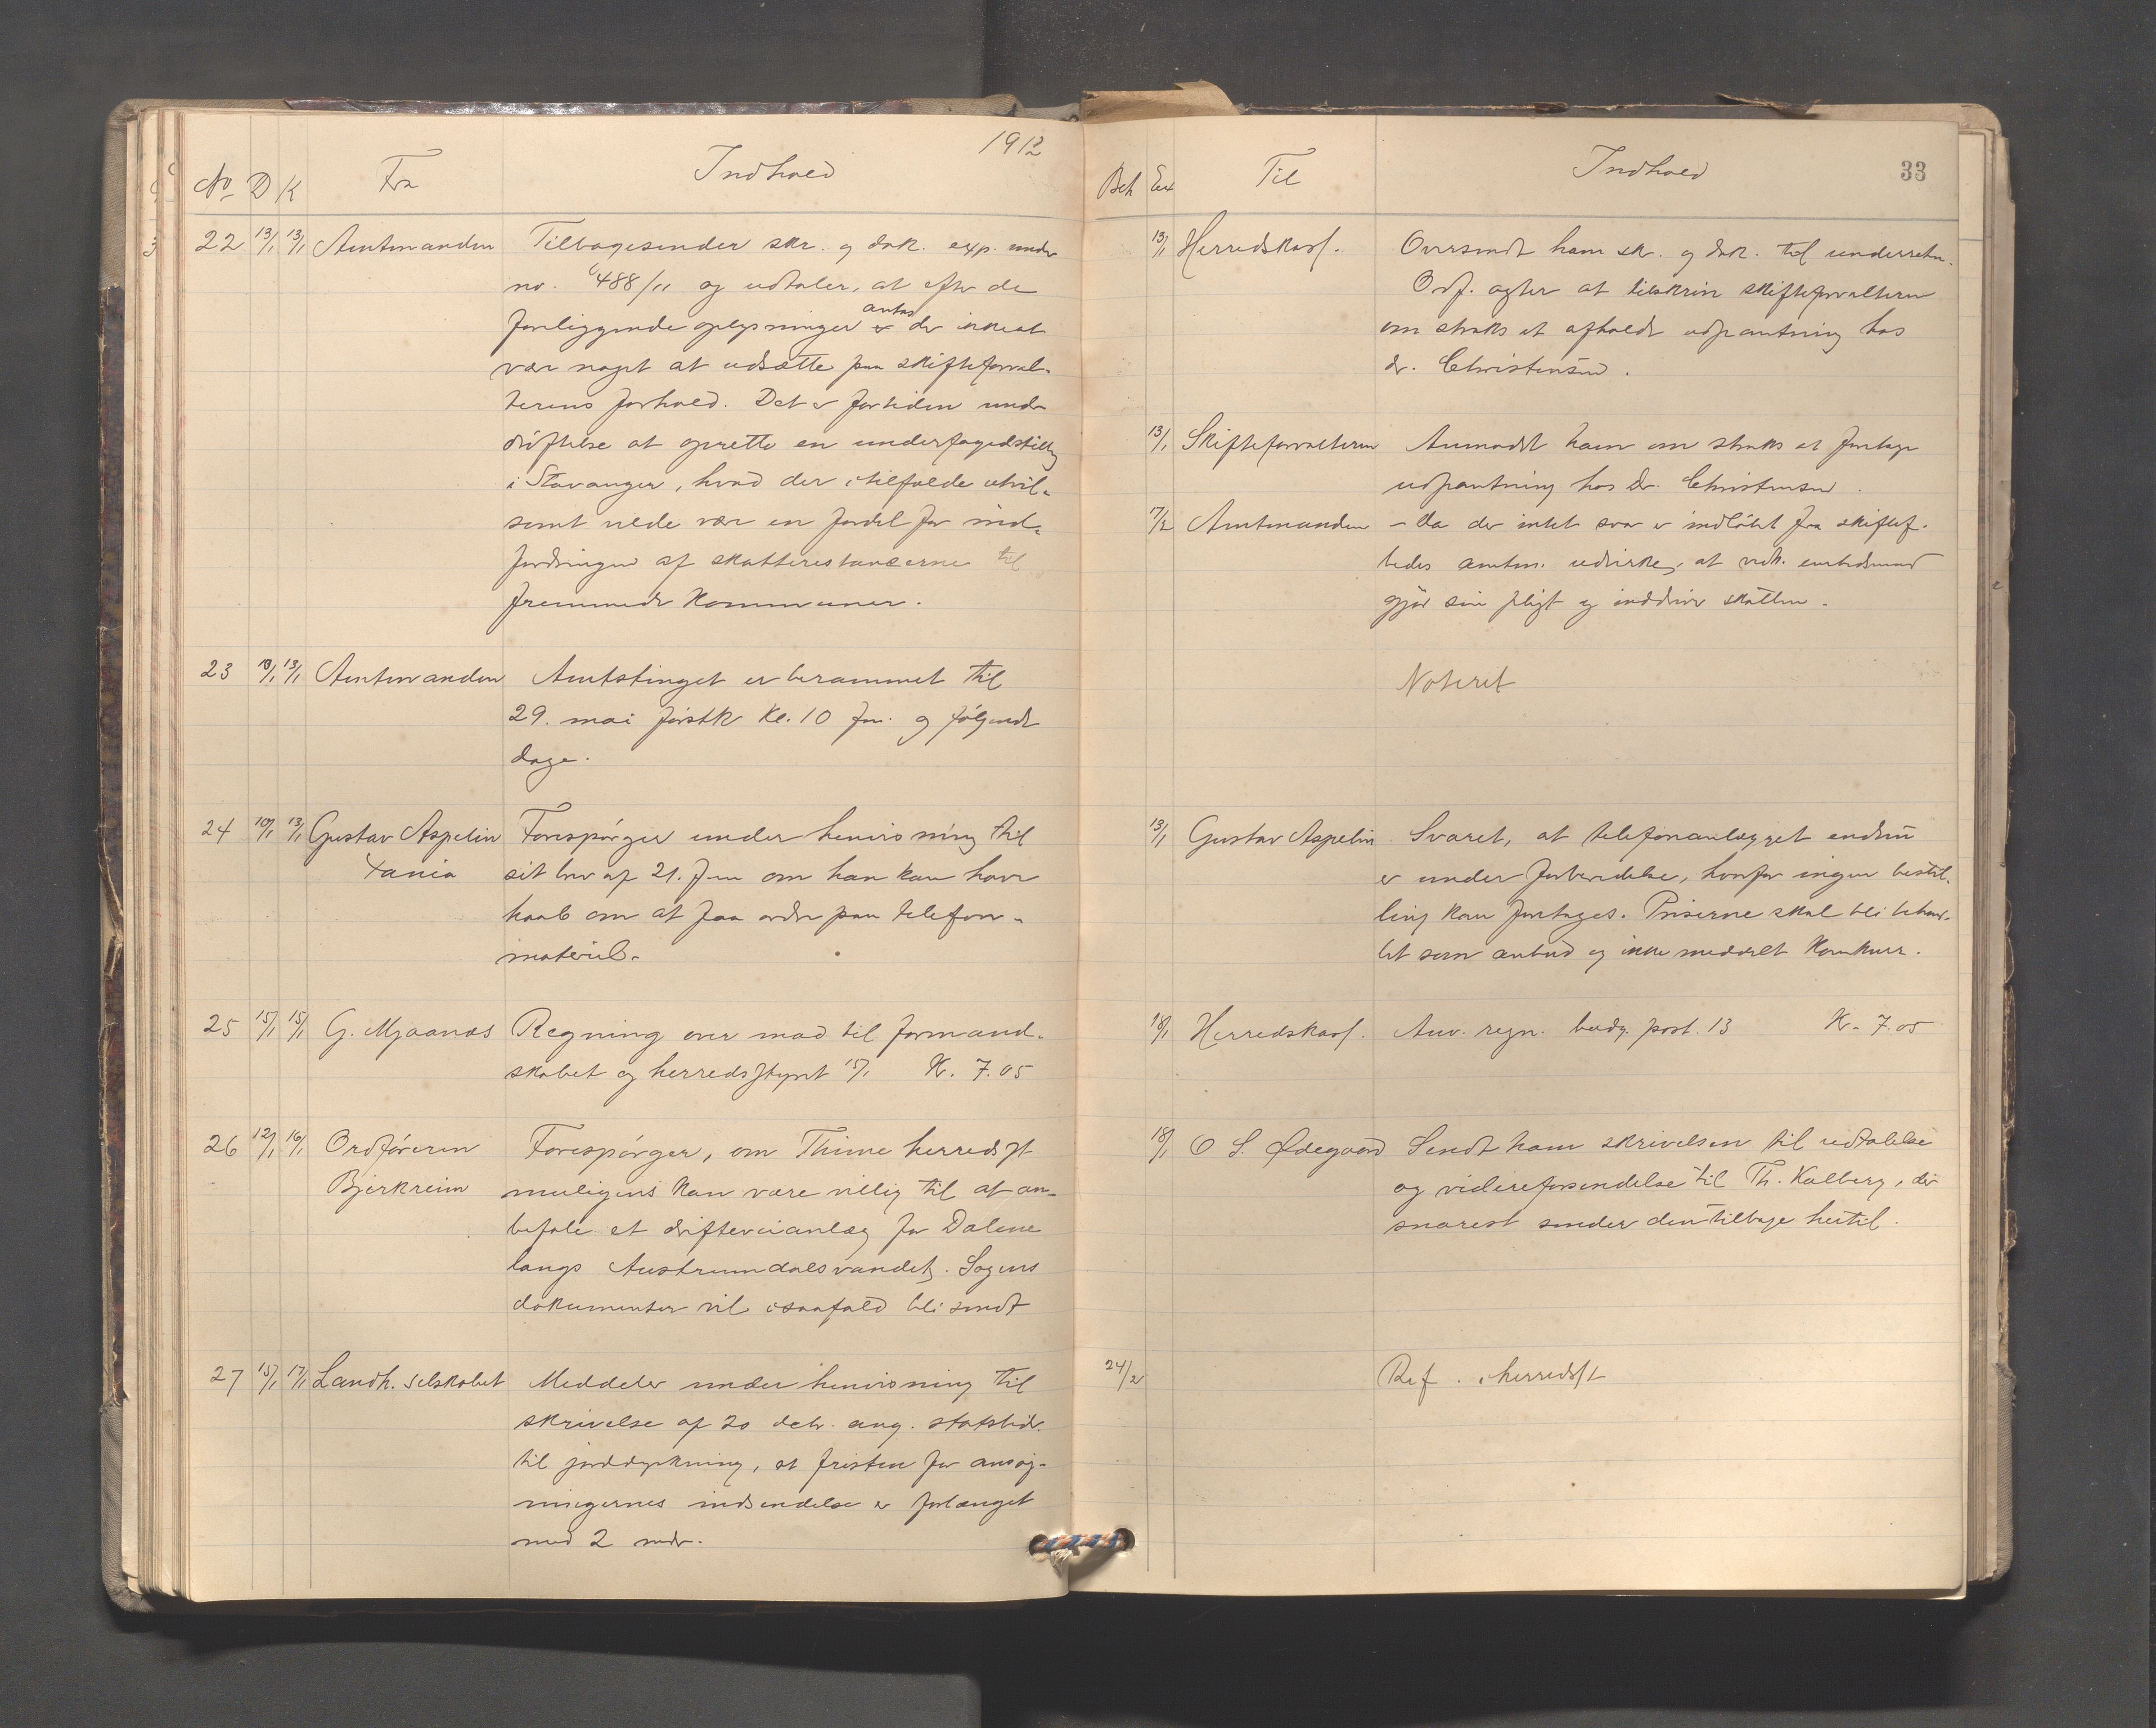 1912
No D K Fra Indhold
22 13/1 13/1 Amtmanden Tilbagesender skr. og dok. exp. under
no. 488/11 og udtaler, at efter de
antas
foreliggende oplysninger er der ikke at
være noget at udsætte paa skifteforval-
terens forhold. Det er fortiden under
drøftelse at oprette en underfogedstilling
i Stavanger, hvad der i tilfælde utvil-
somt vilde være en fordel for ind-
fordringen af skatterestancerne til
fremmede kommuner.
23 13/1 Amtmanden Amtstinget er berammet til
29. mai førstk kl. 10 fm. og følgende
dage.
24 10/1 13/1 Gustav Aspelin Forespørger under henvisning til
Xania sit brev af 21. f.m om han kan have
haab om at faa ordre paa telefon-
materiel.
25 15/1 15/1 G. Mjaanæs Regning over mad til formand-
skabet og herredsstyret 15/1 Kr. 7.05
26 12/1 16/1 Ordføreren Forespørger, om Thime herredsst
Bjerkreim muligens kan være villig til at an-
befale et drifteveianlæg for Dalene
langs Austrumdalsvandet. Sagens
dokumenter vil i saafald bli sendt
27 15/1 17/1 Landh. selskabet Meddeler under henvisning til
skrivelse af 20 debr. ang. statsbidr.
til jorddyrkning, at fristen for ansøg-
ningernes indsendelse er forlænget
med 2 mdr.
33
Beh Exp Til Indhold
13/1 Herredskass. Oversendt ham skr. og dok. til underretn.
Ordf. agter at tilskrive skifteforvalteren
om straks at afholde udpantning hos
dr. Christensen.
13/1 Skifteforvalteren Anmodet ham om straks at foretage
udpantning hos Dr. Christensen.
17/2 Amtmanden - Da der intet svar er indløbet fra skiftef.
bedes amtm. udvirke, at vedk. embedsmand
gjør sin pligt og inddriver skatten.
Noteret
13/1 Gustav Aspelin Svaret, at telefonanlægget endnu
er under forberedelse, hvorfor ingen bestil-
ling kan foretages. Priserne skal bli behand-
let som anbud og ikke meddelt konkurr.
18/1 Herredskass. Anv. regn. budg. post. 13 Kr. 7.05
18/1 O S. Ødegaard Sendt ham skrivelsen til udtalelse
og videreforsendelse til Th. Kalberg, der
snarest sender den tilbage hertil.
24/2 Ref. i herredsst